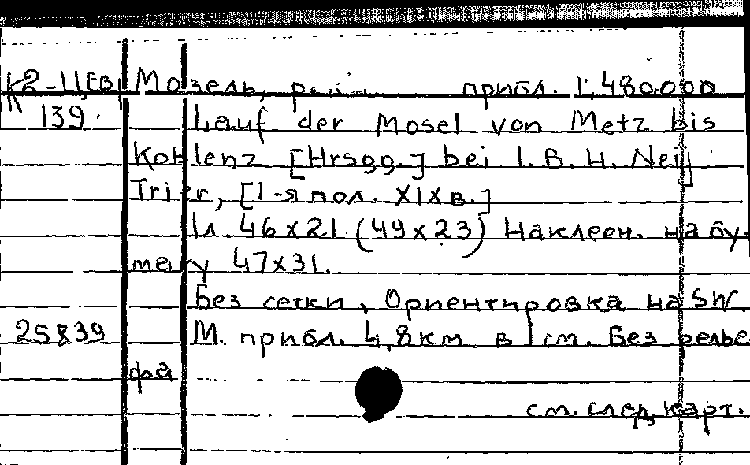 К2-ЦЕВ Мозель, река прибл. 1:480.000
139 Lauf der Mosel von Metz bis
Koblenz [Hrsgg.] bei I. B. H. Neu[
Trier, [1-я пол. XIX в.]
1л. 46x21 (49x23) Наклеен. на бу-
магу 47x31.
Без сетки, Ориентировка на SW
25839 М. прибл. 4,8км в 1 см. Без релье-
фа
см. след. карт.